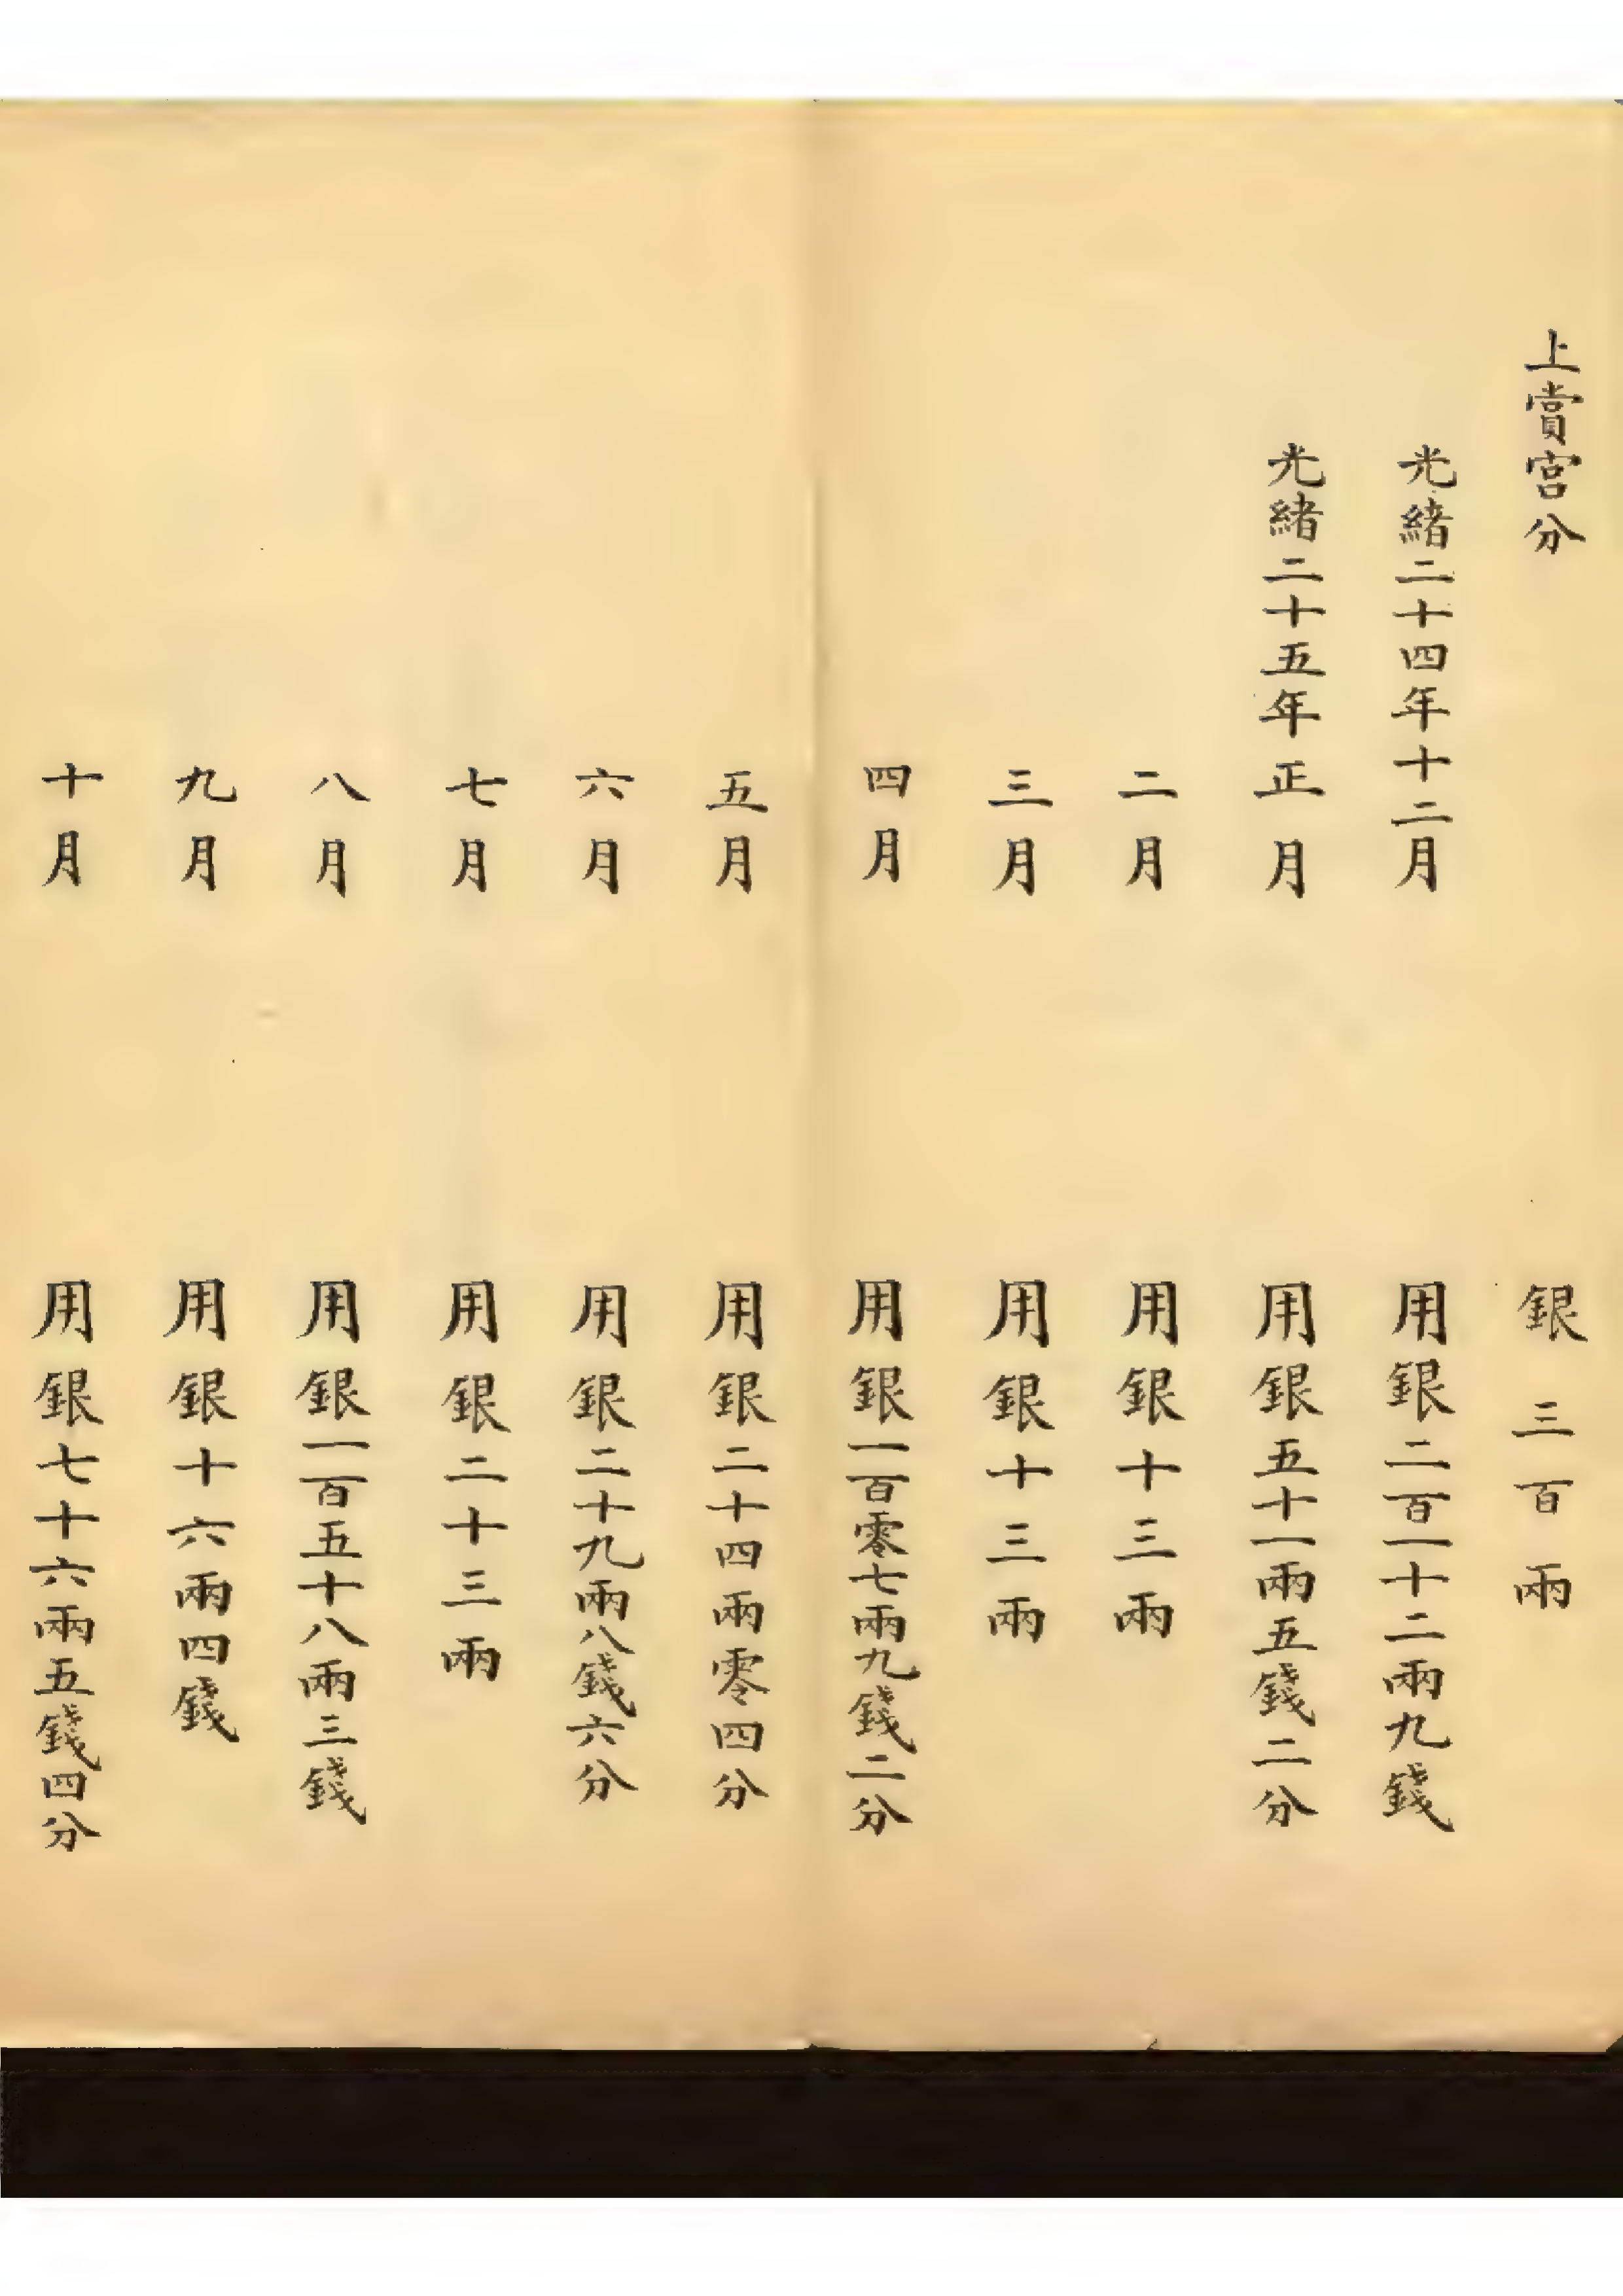 上賞宮分 銀三百兩
光緒二十四年十二月 用銀二百一十二兩九錢
光緒二十五年正月 用銀五十一兩五錢二分
二月 用銀十三兩
三月 用銀十三兩
四月 用銀一百零七兩九錢二分
五月 用銀二十四兩零四分
六月 用銀二十九兩八錢六分
七月 用銀二十三兩
八月 用銀一百五十八兩三錢
九月 用銀十六兩四錢
十月 用銀七十六兩五錢四分